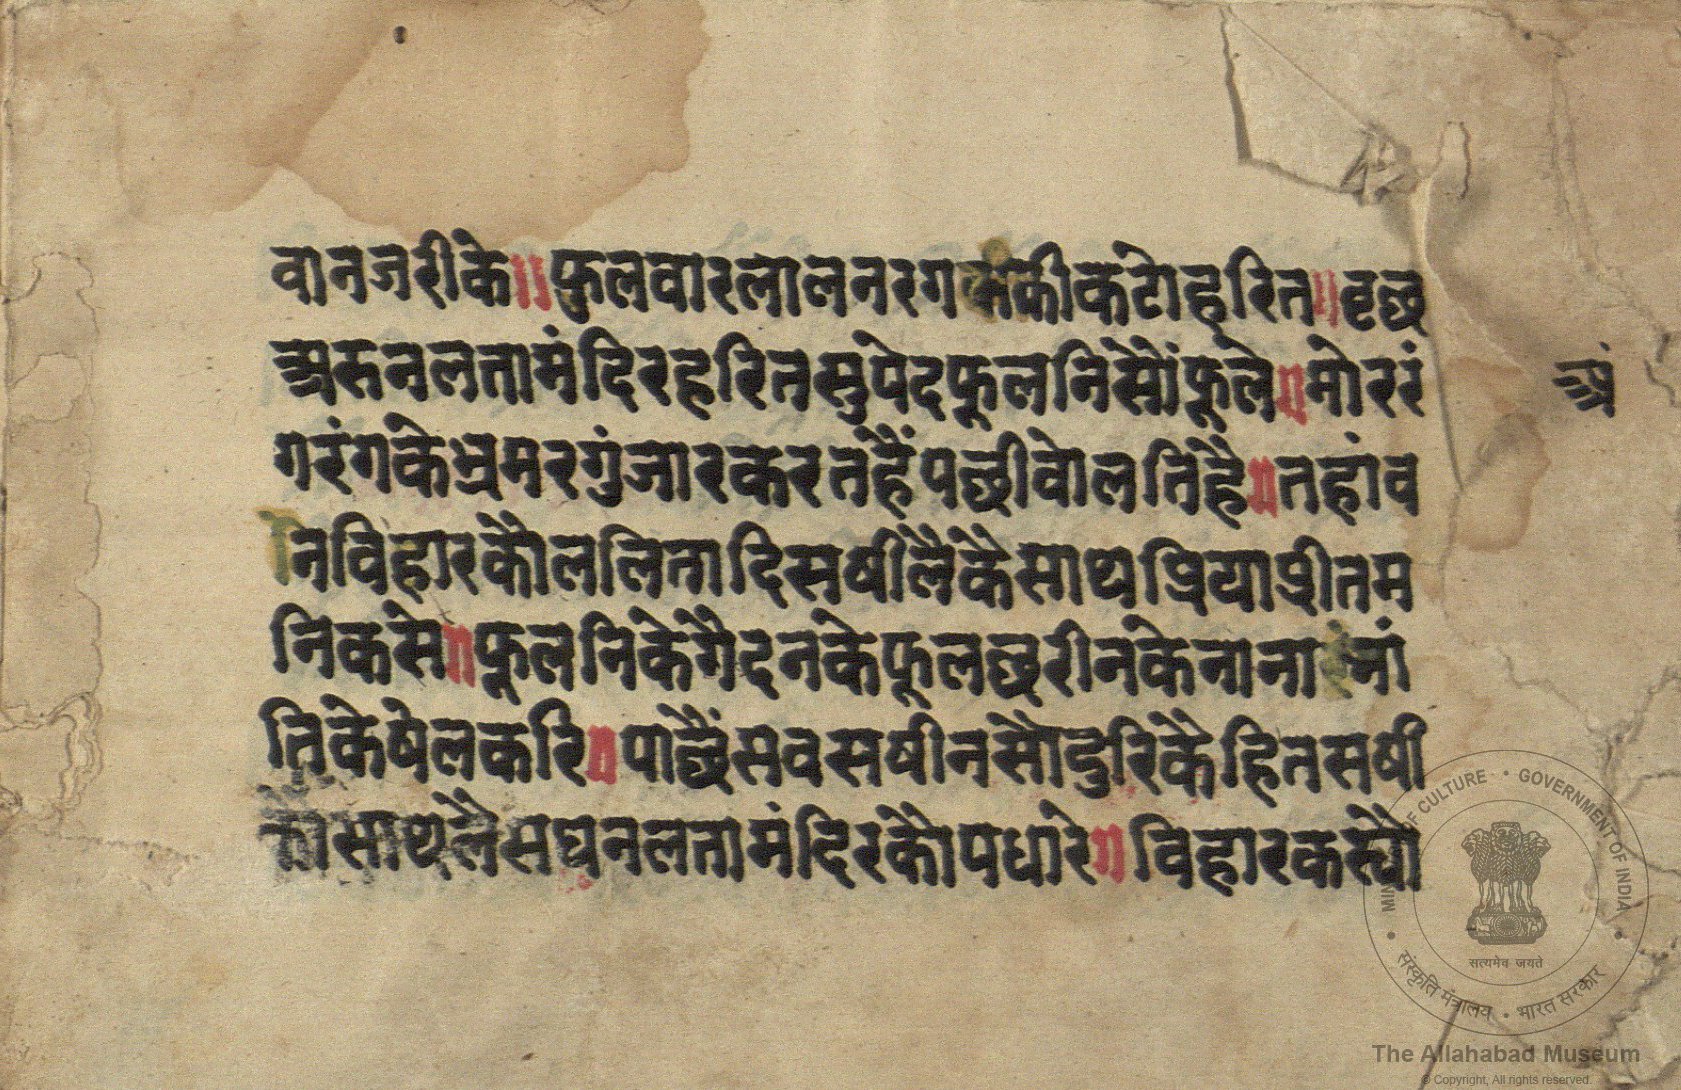 वानजरीके॥फुलवारलालनरग कीकटोहरित॥वृछ
अरुनलतामंदिरहरितसुपेदफूलनिसौंफूले॥मोररं
गरंगकेभ्रमरगुंजारकरतहैंपछीवोलतिहै॥तहांव
निविहारकौललितादिसषीलैकैसाथप्रियाप्रीतम
निकसे॥फूलनिकेगैदनकेफूलछरीनकेनाना भां
तिकेषेलकरि॥पाछैंसवसषीनसौदुरिकैहितसषी
कौसाथलैसघनलतामंदिरकौपधारे॥विहारकस्यौ
MINISTRY OF CULTURE • GOVERNMENT OF INDIA
सत्यमेव जयते
संस्कृति मंत्रालय • भारत सरकार
The Allahabad Museum
© Copyright, All rights reserved.